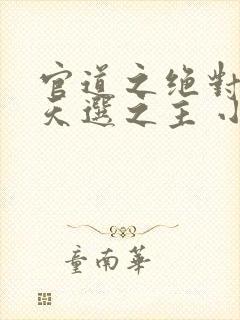 官道之绝對
天選之主 小
童南華